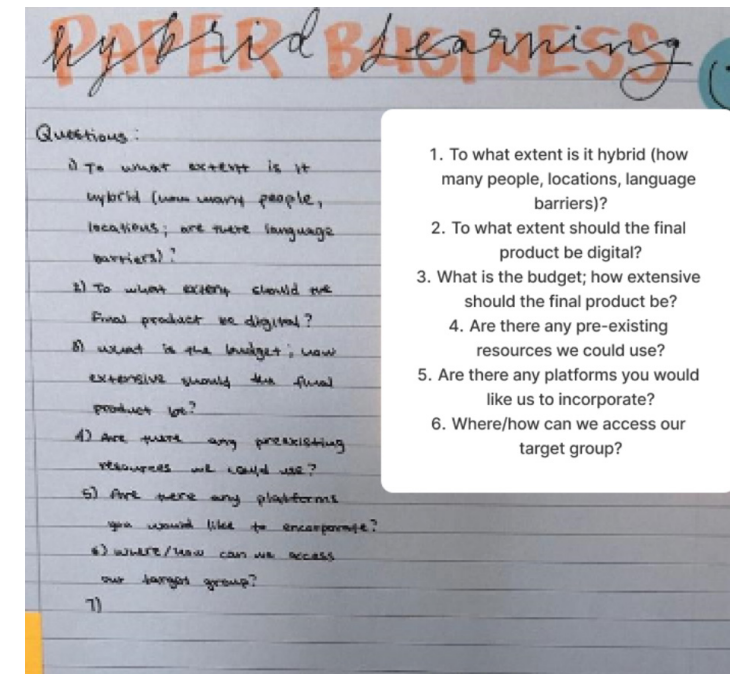 PAPER BUSINESS
hybrid Learning
Questions:
1) To what extent is it
hybrid (how many people,
locations; are there language
barriers)?
2) To what extent should the
final product be digital?
3) what is the budget; how
extensive should the final
product be?
4) Are there any preexisting
resources we could use?
5) Are there any platforms
you would like to encorporate?
6) where/how can we access
our target group?
7)
1. To what extent is it hybrid (how
many people, locations, language
barriers)?
2. To what extent should the final
product be digital?
3. What is the budget; how extensive
should the final product be?
4. Are there any pre-existing
resources we could use?
5. Are there any platforms you would
like us to incorporate?
6. Where/how can we access our
target group?